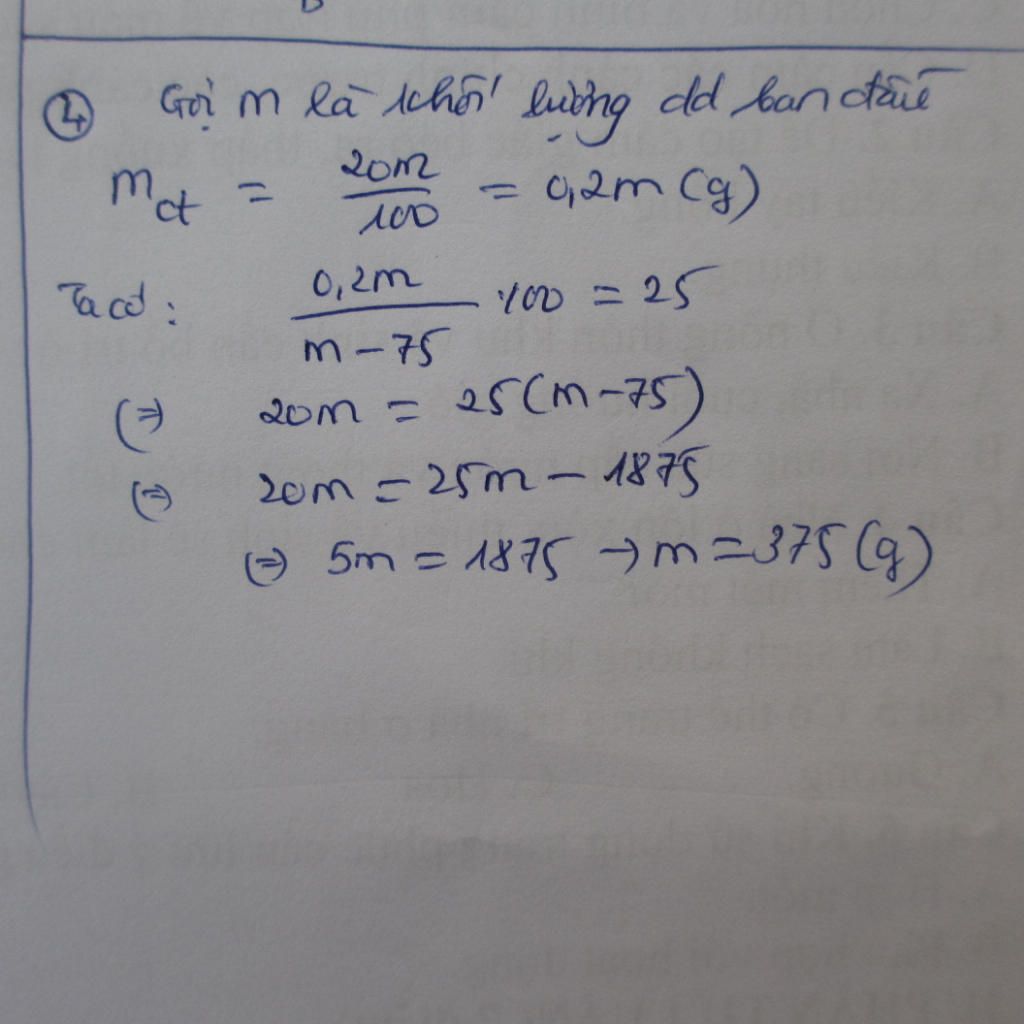 ④ Gọi m là khối lượng dd ban đầu
m_ct = 20m/100 = 0,2m (g)
Ta có: 0,2m/(m-75) .100 = 25
(=) 20m = 25(m-75)
(=) 20m = 25m - 1875
(=) 5m = 1875 → m = 375 (g)